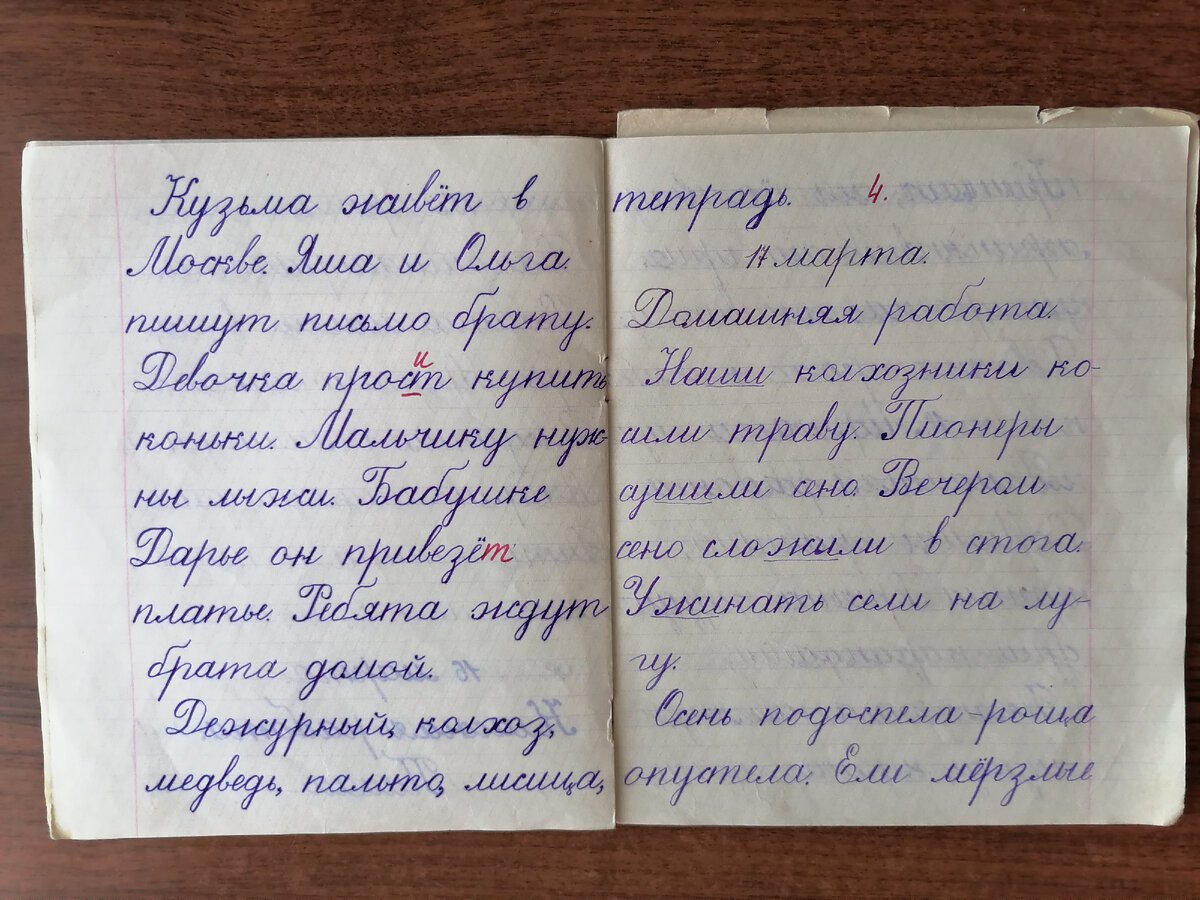 Кузьма живёт в
Москве. Яша и Ольга
пишут письмо брату.
и
Девочка прост купить
коньки. Мальчику нуж-
ны лыжи. Бабушке
Дарье он привезёт
платье. Ребята ждут
брата домой.
Дежурный, колхоз,
медведь, пальто, лисица,
тетрадь. 4.
17 марта.
Домашняя работа.
Наши колхозники ко-
сили траву. Пионеры
сушили сено. Вечером
сено сложили в стога.
Ужинать сели на лу-
гу.
Осень подоспела - роща
опустела. Ели мёрзлые